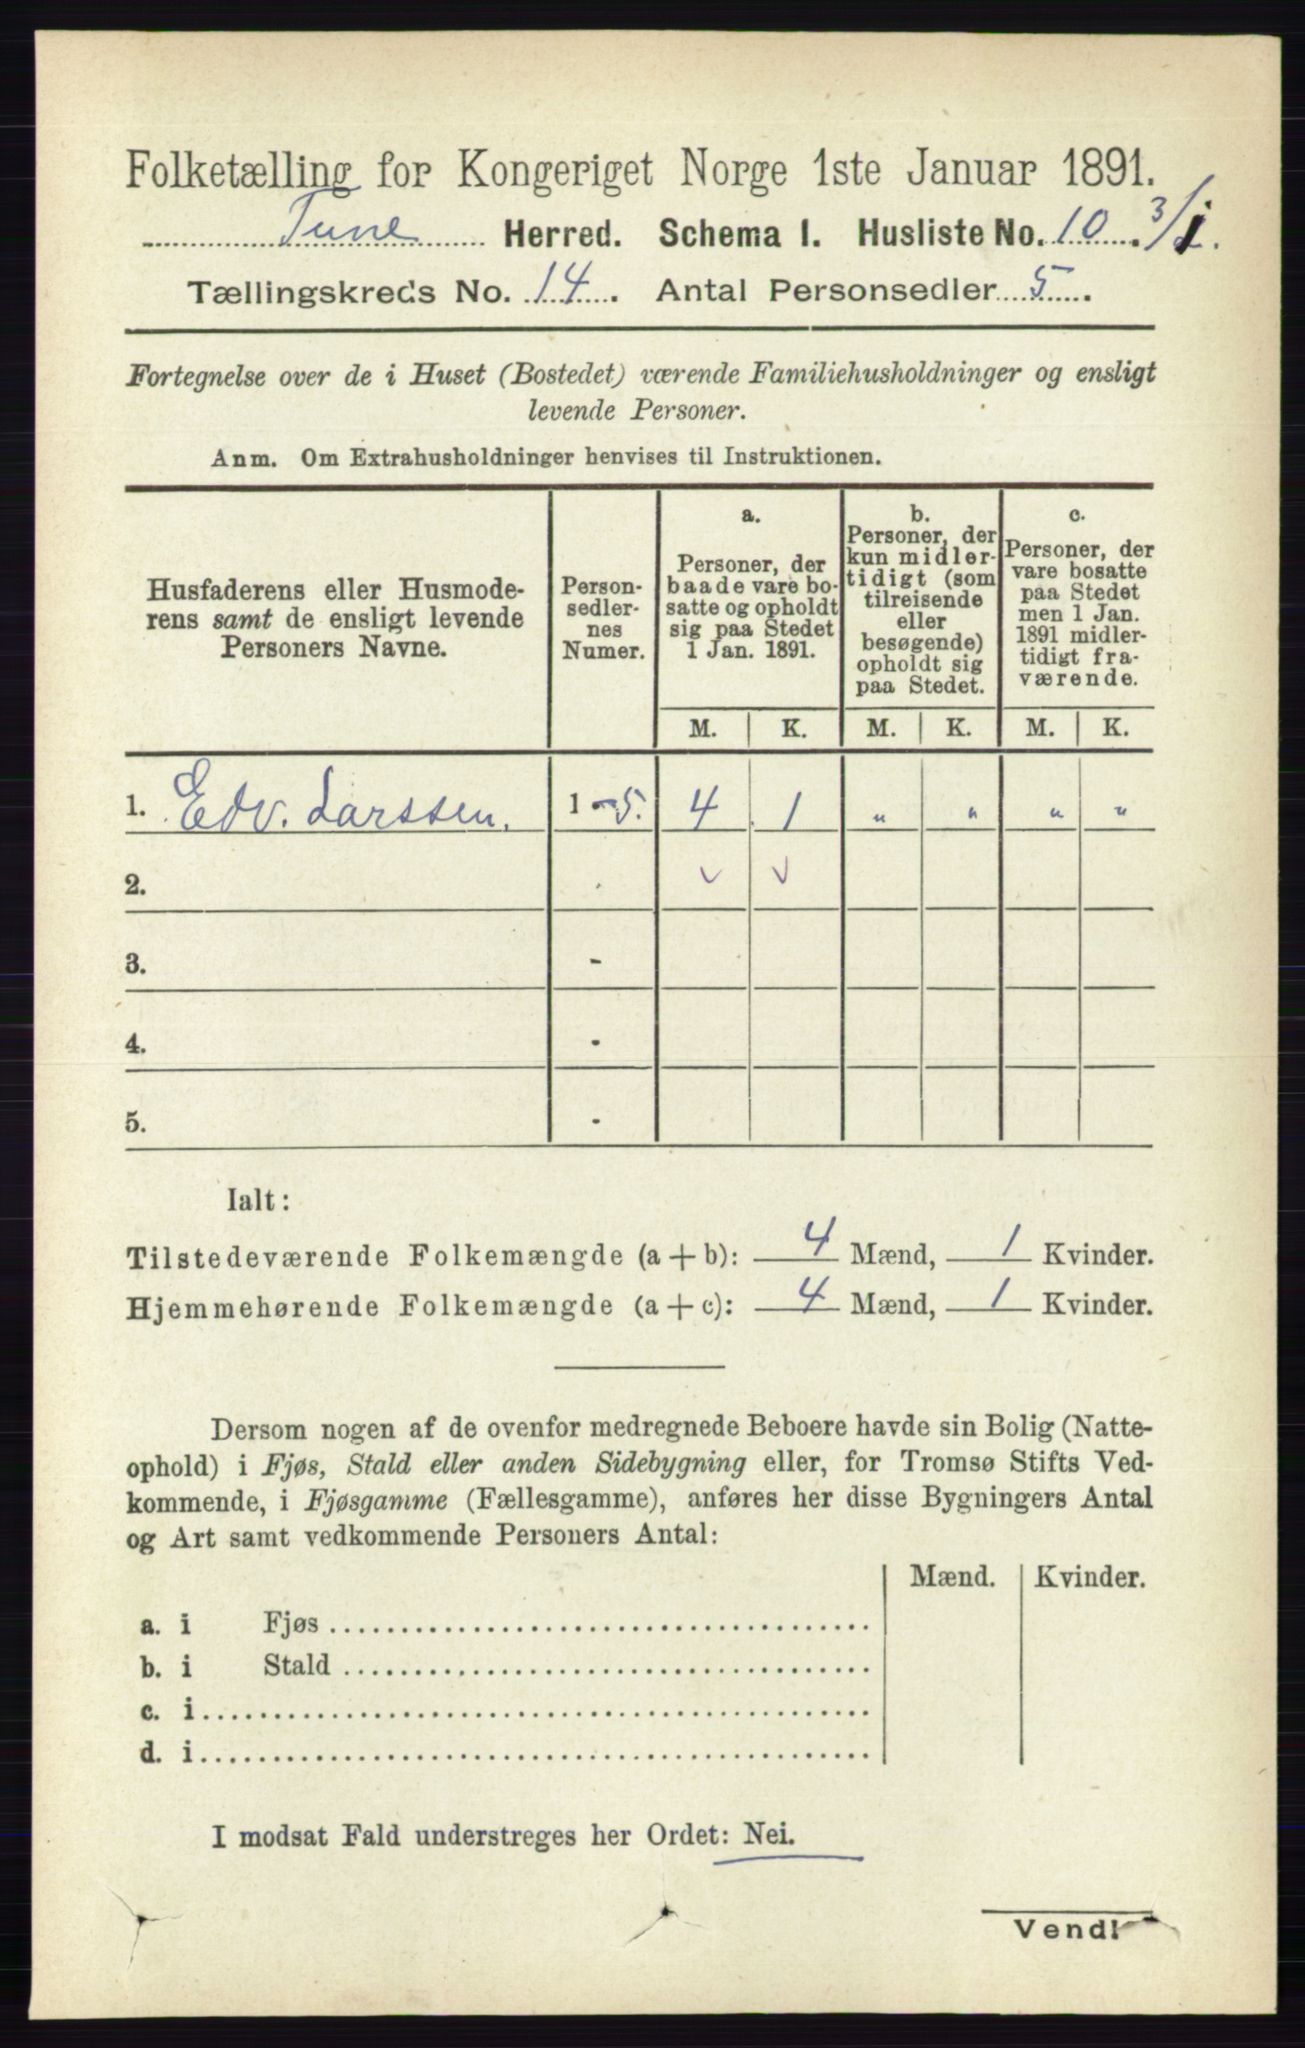 Folketælling for Kongeriget Norge 1ste Januar 1891.
Tune Herred. Schema I. Husliste No. 10. 3/1.
Tællingskreds No. 14. Antal Personsedler 5.
Fortegnelse over de i Huset (Bostedet) værende Familiehusholdninger og ensligt
levende Personer.
Anm. Om Extrahusholdninger henvises til Instruktionen.
Husfaderens eller Husmode-
rens samt de ensligt levende
Personers Navne.
Person-
sedler-
nes
Numer.
a.
Personer, der
baade vare bo-
satte og opholdt
sig paa Stedet
1 Jan. 1891.
b.
Personer, der
kun midler-
tidigt (som
tilreisende
eller
besøgende)
opholdt sig
paa Stedet.
c.
Personer, der
vare bosatte
paa Stedet
men 1 Jan.
1891 midler-
tidigt fra-
værende.
M. K. M. K. M. K.
1. Edv. Larssen. 1-5. 4 1 " " " "
2. . v v
3. -
4. -
5. -
Ialt:
Tilstedeværende Folkemængde (a+b): 4 Mænd, 1 Kvinder.
Hjemmehørende Folkemængde (a+c): 4 Mænd, 1 Kvinder.
Dersom nogen af de ovenfor medregnede Beboere havde sin Bolig (Natte-
ophold) i Fjøs, Stald eller anden Sidebygning eller, for Tromsø Stifts Ved-
kommende, i Fjøsgamme (Fællesgamme), anføres her disse Bygningers Antal
og Art samt vedkommende Personers Antal:
Mænd. Kvinder.
a. i Fjøs
b. i Stald
c. i
d. i
I modsat Fald understreges her Ordet: Nei.
Vend!